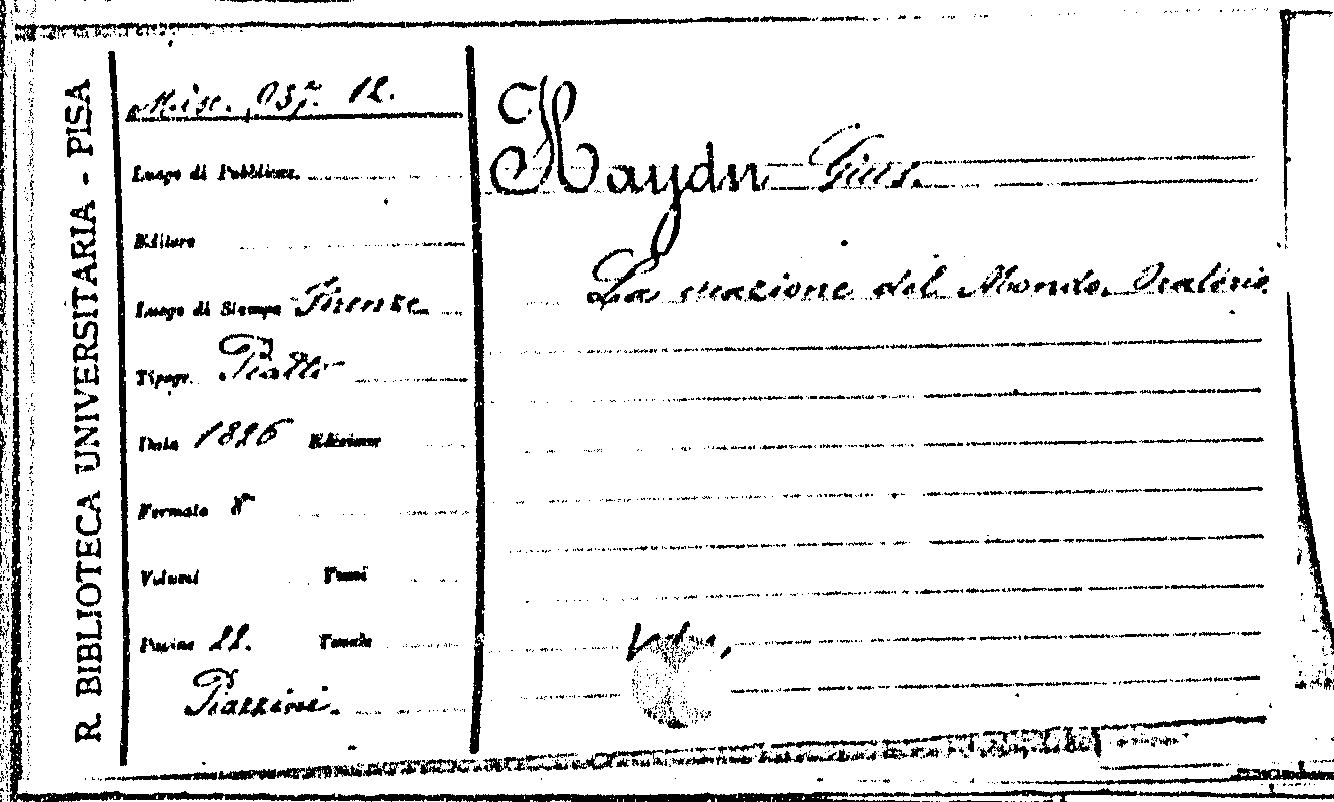 R. BIBLIOTECA UNIVERSITARIA - PISA
Misc. 12.
Luogo di Pubblicaz.
Editore
Luogo di Stampa Firenze
Tipogr. Piatti
Data 1826 Edizione
Formato 8º
Volumi Tomi
Pagine 22. Tavole
Piazzini.
Haydn Gius.
La creazione del Mondo. Oratorio.